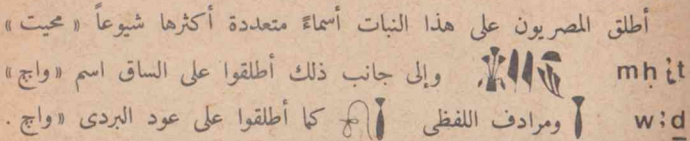 أطلق المصريون على هذا النبات أسماءً متعددة أكثرها شيوعاً « محيت »
mḥi҆t وإلى جانب ذلك أطلقوا على الساق اسم « واج »
wꜣḏ ومرادف اللفظى كما أطلقوا على عود البردى « واج .